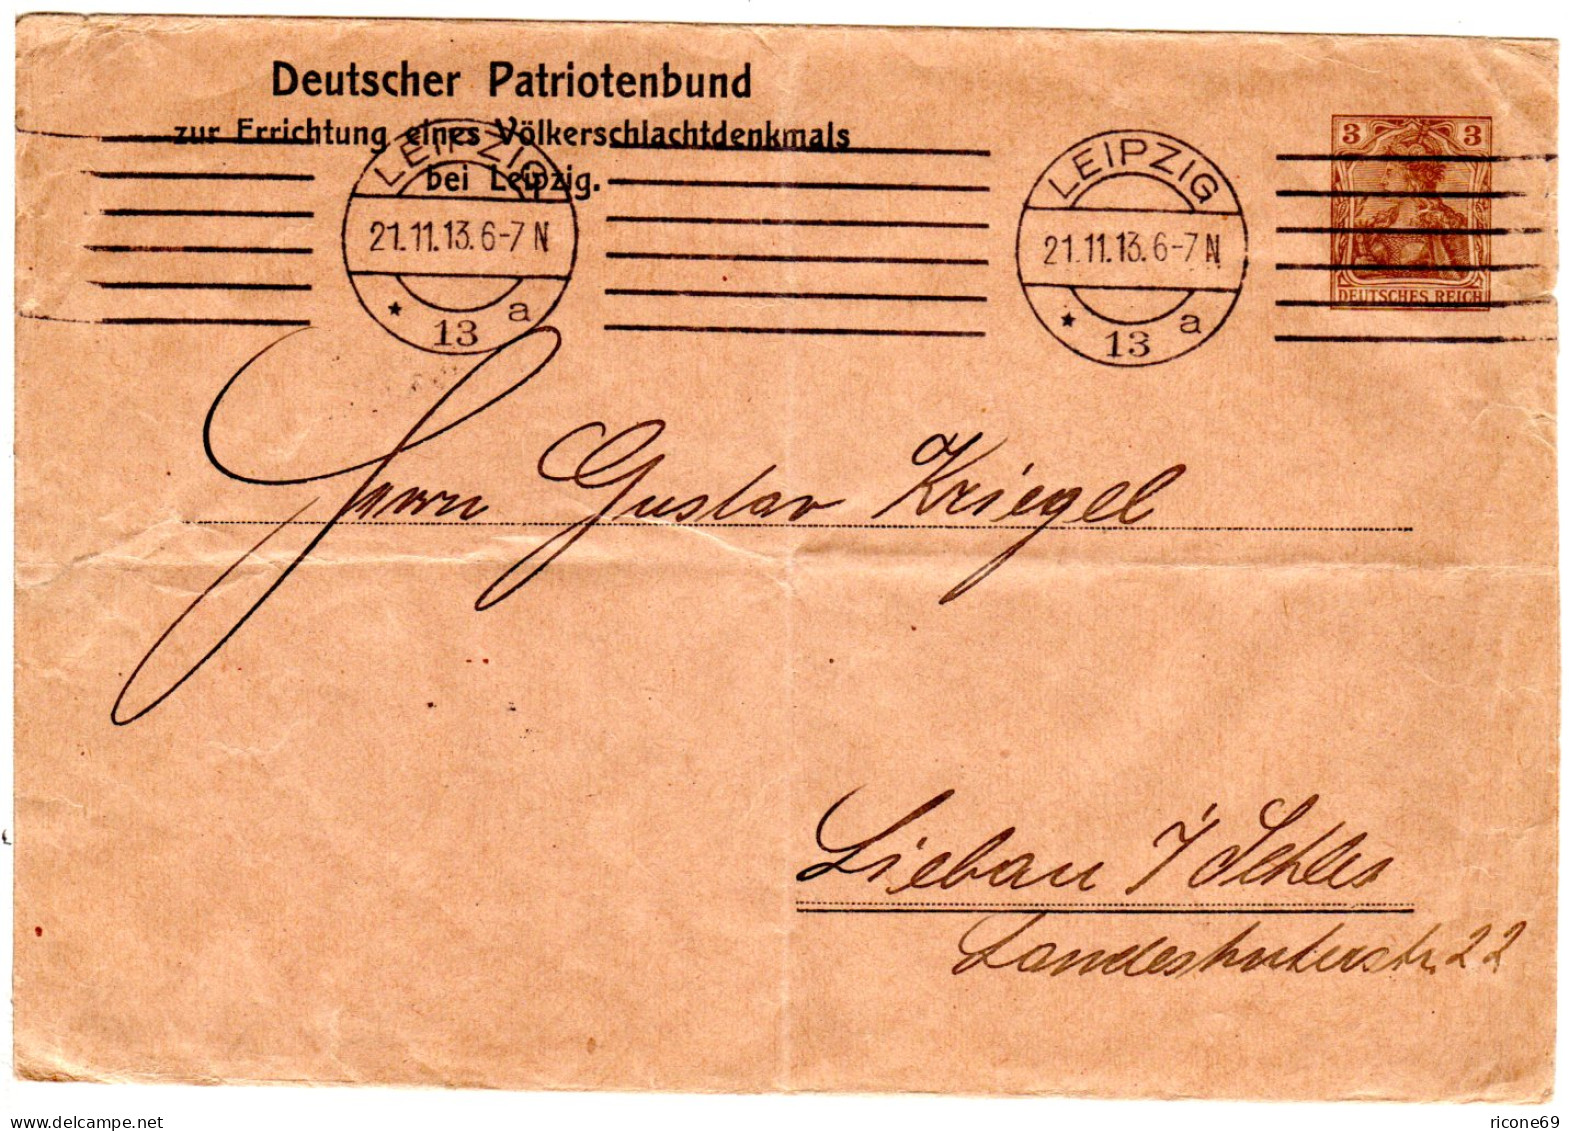 Deutscher Patriotenbund
zur Errichtung eines Völkerschlachtdenkmals
bei Leipzig.
LEIPZIG
21.11.13.6-7 N
* 13 a
LEIPZIG
21.11.13.6-7 N
* 13 a
3 3
DEUTSCHES REICH
Herrn Gustav Kriegel
Liebau i/Schles
Landeshuterstr. 22
www.delcampe.net
ricone69